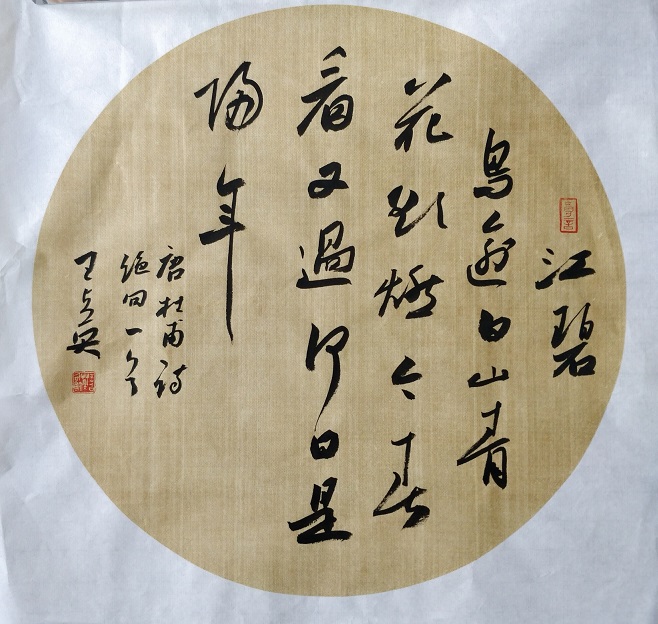 江碧
鳥逾白山青
花欲燃今春
看又過何日是
歸年
唐杜甫詩
絕句一首
王